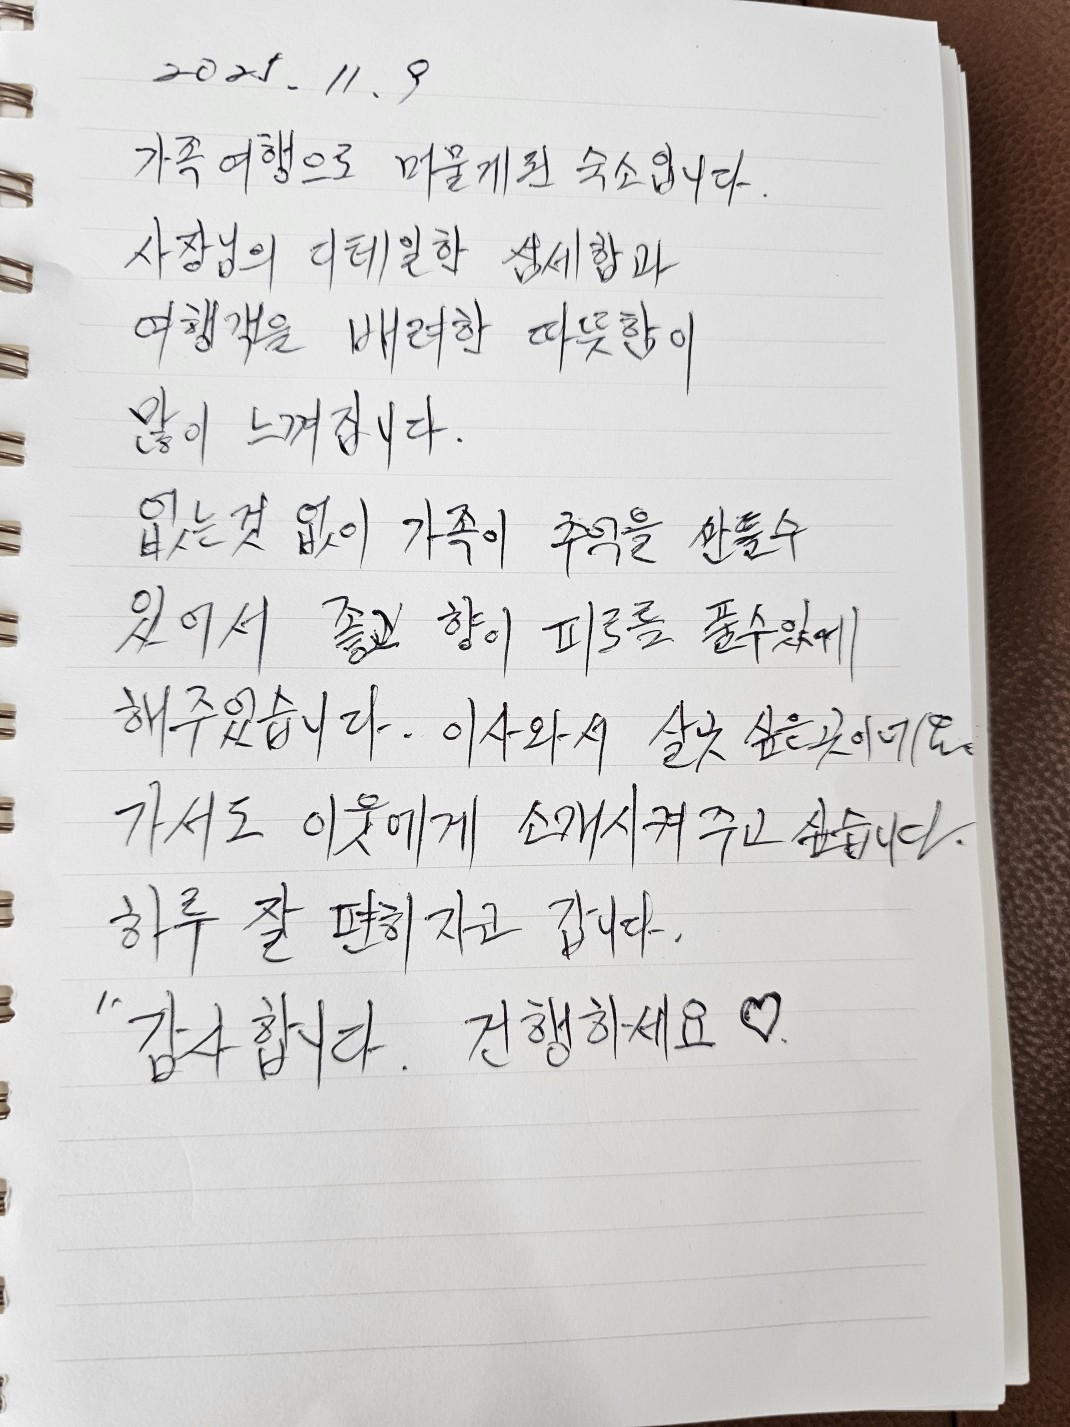 2025. 11. 9
가족여행으로 머물게된 숙소입니다.
사장님의 디테일한 섬세함과
여행객을 배려한 따뜻함이
많이 느껴집니다.
없는것 없이 가족이 추억을 만들수
있어서 좋고 향이 피로를 풀수있게
해주었습니다. 이사와서 살고 싶은곳이네요.
가서도 이웃에게 소개시켜 주고 싶습니다.
하루 잘 편히 자고 갑니다.
" 감사합니다. 건행하세요 ♡.